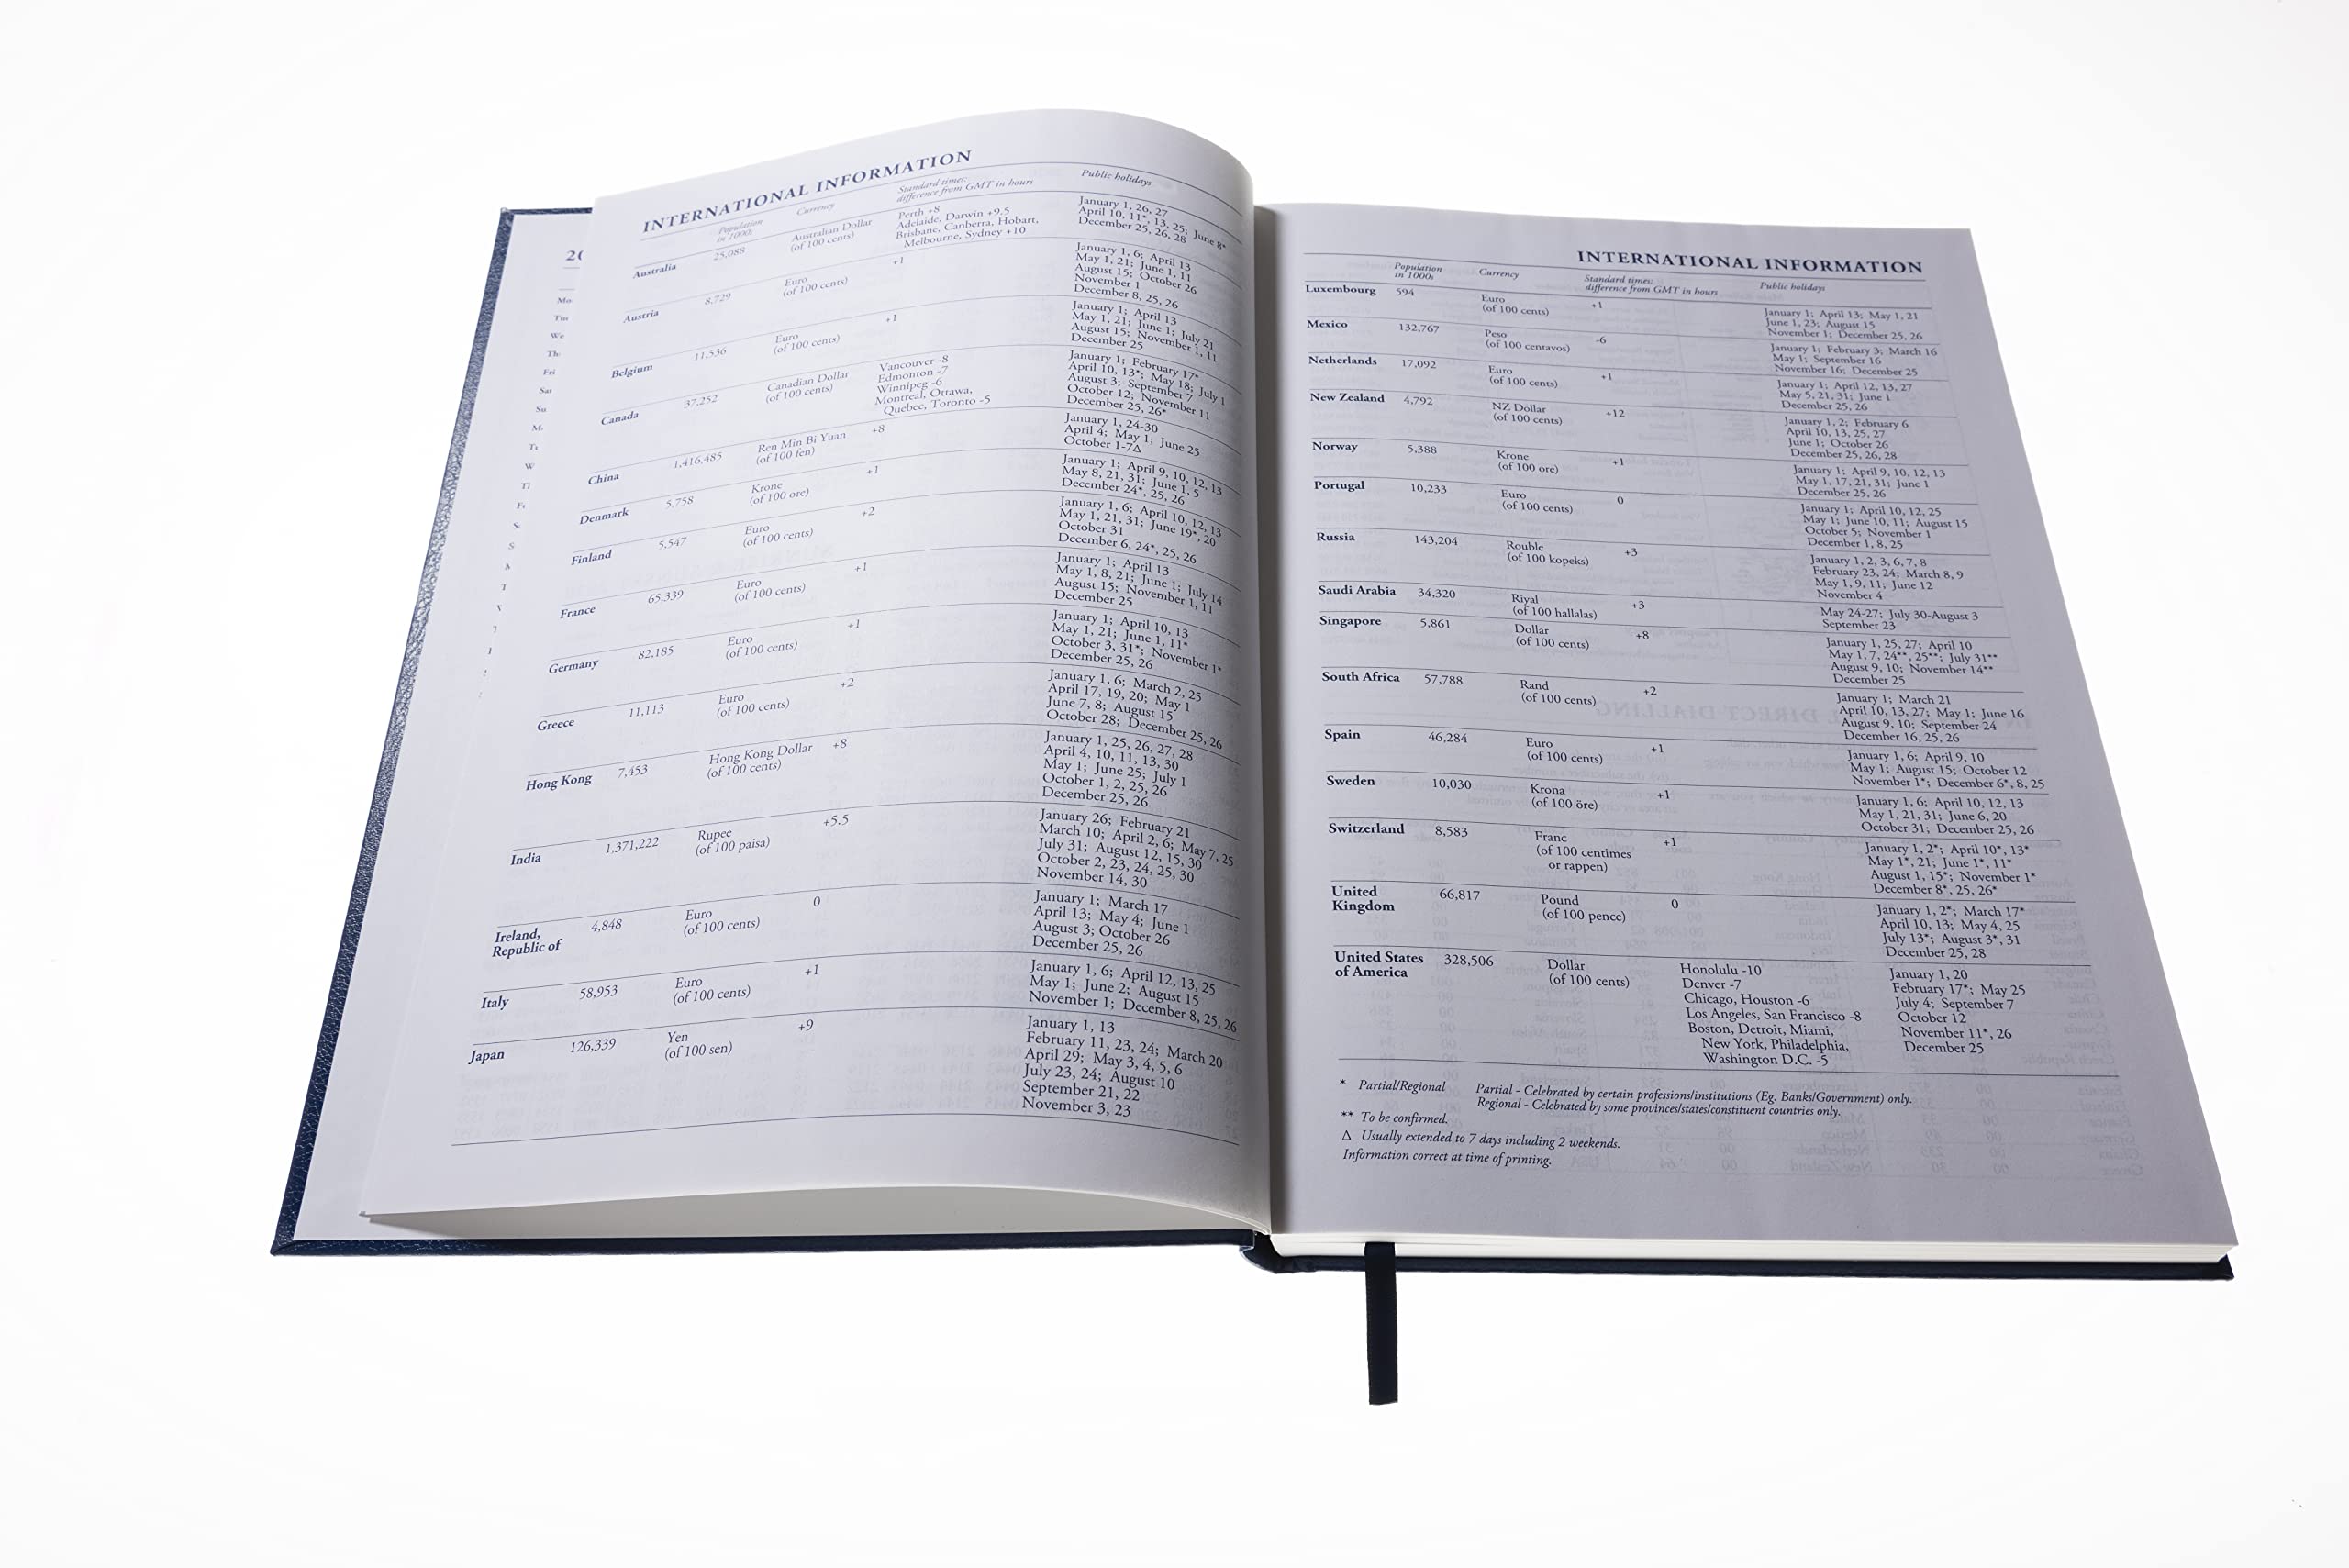 20
Mo
Tue
We
Th
Fri
Sat
Su
INTERNATIONAL INFORMATION
Population in 1000s Currency Standard times: difference from GMT in hours Public holidays
Australia 25,088 Australian Dollar (of 100 cents) Perth +8 January 1, 26, 27
Adelaide, Darwin +9.5 April 10, 11*, 13, 25; June 8*
Brisbane, Canberra, Hobart, December 25, 26, 28
Melbourne, Sydney +10
Austria 8,729 Euro (of 100 cents) +1 January 1, 6; April 13
May 1, 21; June 1, 11
August 15; October 26
November 1
December 8, 25, 26
Belgium 11,536 Euro (of 100 cents) +1 January 1; April 13
May 1, 21; June 1; July 21
August 15; November 1, 11
December 25
Canada 37,252 Canadian Dollar (of 100 cents) Vancouver -8 January 1; February 17*
Edmonton -7 April 10, 13*; May 18; July 1
Winnipeg -6 August 3; September 7
Montreal, Ottawa, October 12; November 11
Quebec, Toronto -5 December 25, 26*
China 1,416,485 Ren Min Bi Yuan (of 100 fen) +8 January 1, 24-30
April 4; May 1; June 25
October 1-7Δ
Denmark 5,758 Krone (of 100 ore) +1 January 1; April 9, 10, 12, 13
May 8, 21, 31; June 1, 5
December 24*, 25, 26
Finland 5,547 Euro (of 100 cents) +2 January 1, 6; April 10, 12, 13
May 1, 21, 31; June 19*, 20
October 31
December 6, 24*, 25, 26
France 65,339 Euro (of 100 cents) +1 January 1; April 13
May 1, 8, 21; June 1; July 14
August 15; November 1, 11
December 25
Germany 82,185 Euro (of 100 cents) +1 January 1; April 10, 13
May 1, 21; June 1, 11*
October 3, 31*; November 1*
December 25, 26
Greece 11,113 Euro (of 100 cents) +2 January 1, 6; March 2, 25
April 17, 19, 20; May 1
June 7, 8; August 15
October 28; December 25, 26
Hong Kong 7,453 Hong Kong Dollar (of 100 cents) +8 January 1, 25, 26, 27, 28
April 4, 10, 11, 13, 30
May 1; June 25; July 1
October 1, 2, 25, 26
December 25, 26
India 1,371,222 Rupee (of 100 paisa) +5.5 January 26; February 21
March 10; April 2, 6; May 7, 25
July 31; August 12, 15, 30
October 2, 23, 24, 25, 30
November 14, 30
Ireland, Republic of 4,848 Euro (of 100 cents) 0 January 1; March 17
April 13; May 4; June 1
August 3; October 26
December 25, 26
Italy 58,953 Euro (of 100 cents) +1 January 1, 6; April 12, 13, 25
May 1; June 2; August 15
November 1; December 8, 25, 26
Japan 126,339 Yen (of 100 sen) +9 January 1, 13
February 11, 23, 24; March 20
April 29; May 3, 4, 5, 6
July 23, 24; August 10
September 21, 22
November 3, 23
INTERNATIONAL INFORMATION
Population in 1000s Currency Standard times: difference from GMT in hours Public holidays
Luxembourg 594 Euro (of 100 cents) +1 January 1; April 13; May 1, 21
June 1, 23; August 15
November 1; December 25, 26
Mexico 132,767 Peso (of 100 centavos) -6 January 1; February 3; March 16
May 1; September 16
November 16; December 25
Netherlands 17,092 Euro (of 100 cents) +1 January 1; April 12, 13, 27
May 5, 21, 31; June 1
December 25, 26
New Zealand 4,792 NZ Dollar (of 100 cents) +12 January 1, 2; February 6
April 10, 13, 25, 27
June 1; October 26
December 25, 26, 28
Norway 5,388 Krone (of 100 ore) +1 January 1; April 9, 10, 12, 13
May 1, 17, 21, 31; June 1
December 25, 26
Portugal 10,233 Euro (of 100 cents) 0 January 1; April 10, 12, 25
May 1; June 10, 11; August 15
October 5; November 1
December 1, 8, 25
Russia 143,204 Rouble (of 100 kopeks) +3 January 1, 2, 3, 6, 7, 8
February 23, 24; March 8, 9
May 1, 9, 11; June 12
November 4
Saudi Arabia 34,320 Riyal (of 100 hallalas) +3 May 24-27; July 30-August 3
September 23
Singapore 5,861 Dollar (of 100 cents) +8 January 1, 25, 27; April 10
May 1, 7, 24**, 25**; July 31**
August 9, 10; November 14**
December 25
South Africa 57,788 Rand (of 100 cents) +2 January 1; March 21
April 10, 13, 27; May 1; June 16
August 9, 10; September 24
December 16, 25, 26
Spain 46,284 Euro (of 100 cents) +1 January 1, 6; April 9, 10
May 1; August 15; October 12
November 1*; December 6*, 8, 25
Sweden 10,030 Krona (of 100 öre) +1 January 1, 6; April 10, 12, 13
May 1, 21, 31; June 6, 20
October 31; December 25, 26
Switzerland 8,583 Franc (of 100 centimes or rappen) +1 January 1, 2*; April 10*, 13*
May 1*, 21; June 1*, 11*
August 1, 15*; November 1*
December 8*, 25, 26*
United Kingdom 66,817 Pound (of 100 pence) 0 January 1, 2*; March 17*
April 10, 13; May 4, 25
July 13*; August 3*, 31
December 25, 28
United States of America 328,506 Dollar (of 100 cents) Honolulu -10 January 1, 20
Denver -7 February 17*; May 25
Chicago, Houston -6 July 4; September 7
Los Angeles, San Francisco -8 October 12
Boston, Detroit, Miami, November 11*, 26
New York, Philadelphia, December 25
Washington D.C. -5
* Partial/Regional Partial - Celebrated by certain professions/institutions (Eg. Banks/Government) only.
Regional - Celebrated by some provinces/states/constituent countries only.
** To be confirmed.
Δ Usually extended to 7 days including 2 weekends.
Information correct at time of printing.